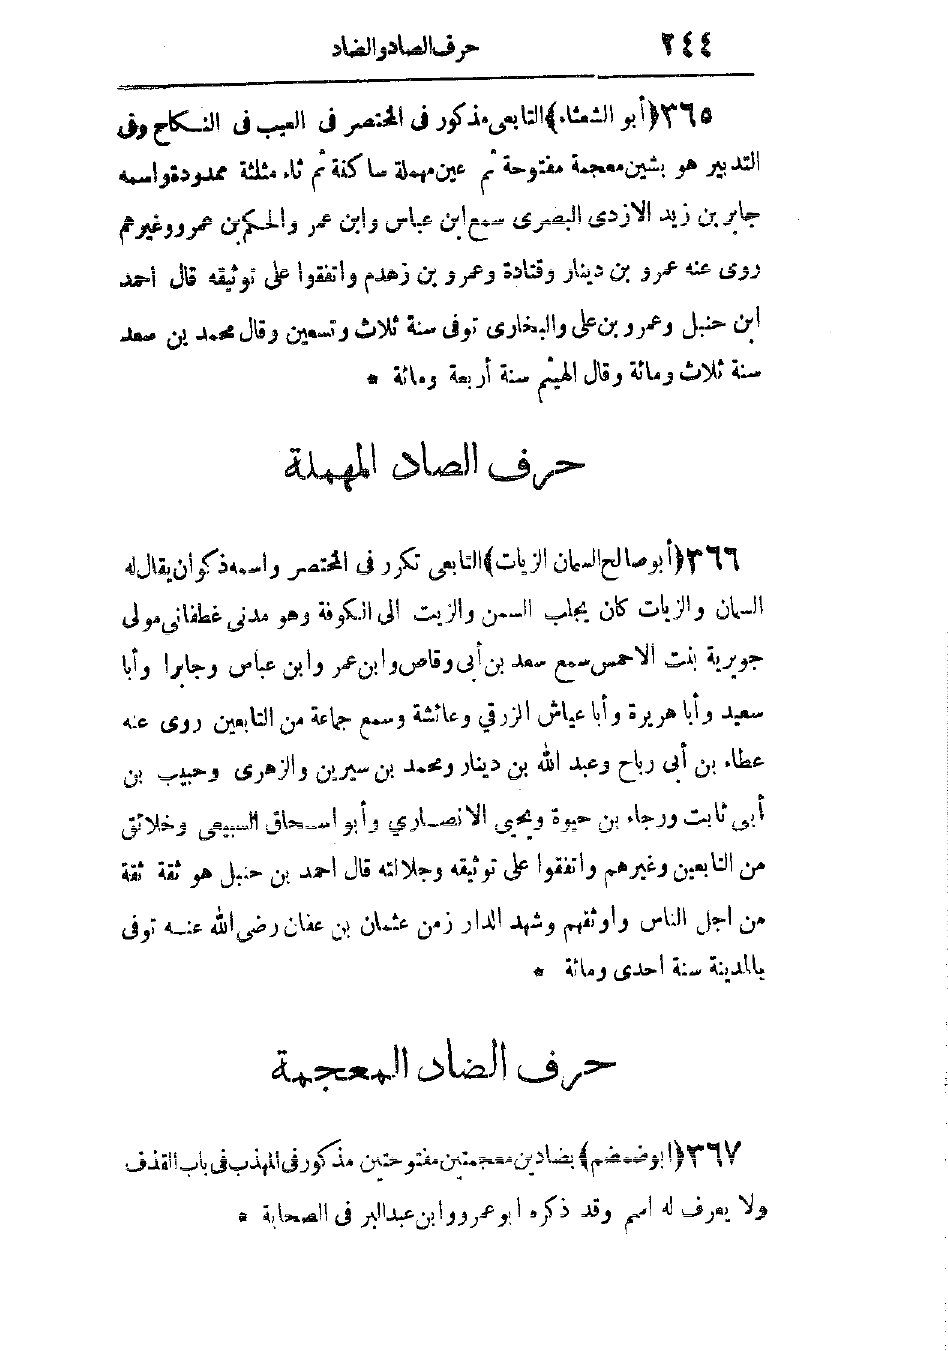 ٢٤٤ حرف الصاد والضاد
٣٦٥ ﴿أبو الشعثاء﴾ التابعى مذكور فى المختصر فى العيب فى النكاح وفى
التدبير هو بشين معجمة مفتوحة ثم عين مهملة ساكنة ثم ثاء مثلثة ممدودة واسمه
جابر بن زيد الازدى البصرى سمع ابن عباس وابن عمر والحكم بن عمرو وغيرهم
روى عنه عمرو بن دينار وقتادة وعمرو بن زهدم واتفقوا على توثيقه قال احمد
ابن حنبل وعمرو بن على والبخارى توفى سنة ثلاث وتسعين وقال محمد بن سعد
سنة ثلاث ومائة وقال الهيثم سنة أربعة ومائة *
حرف الصاد المهملة
٣٦٦ ﴿أبو صالح السمان الزيات﴾ التابعى تكرر فى المختصر واسمه ذكوان يقال له
السمان والزيات كان يجلب السمن والزيت الى الكوفة وهو مدنى غطفانى مولى
جويرية بنت الاحمس سمع سعد بن أبى وقاص وابن عمر وابن عباس وجابرا وأبا
سعيد وأبا هريرة وأبا عياش الزرقي وعائشة وسمع جماعة من التابعين روى عنه
عطاء بن أبى رباح وعبد الله بن دينار ومحمد بن سيرين والزهرى وحبيب بن
أبى ثابت ورجاء بن حيوة ويحيى الانصاري وأبو اسحاق السبيعى وخلائق
من التابعين وغيرهم واتفقوا على توثيقه وجلالته قال احمد بن حنبل هو ثقة ثقة
من اجل الناس واوثقهم وشهد الدار زمن عثمان بن عفان رضى الله عنه توفى
بالمدينة سنة احدى ومائة *
حرف الضاد المعجمة
٣٦٧ ﴿ابو ضمضم﴾ بضادين معجمتين مفتوحتين مذكور فى المهذب فى باب القذف
ولا يعرف له اسم وقد ذكره ابو عمرو وابن عبد البر فى الصحابة *